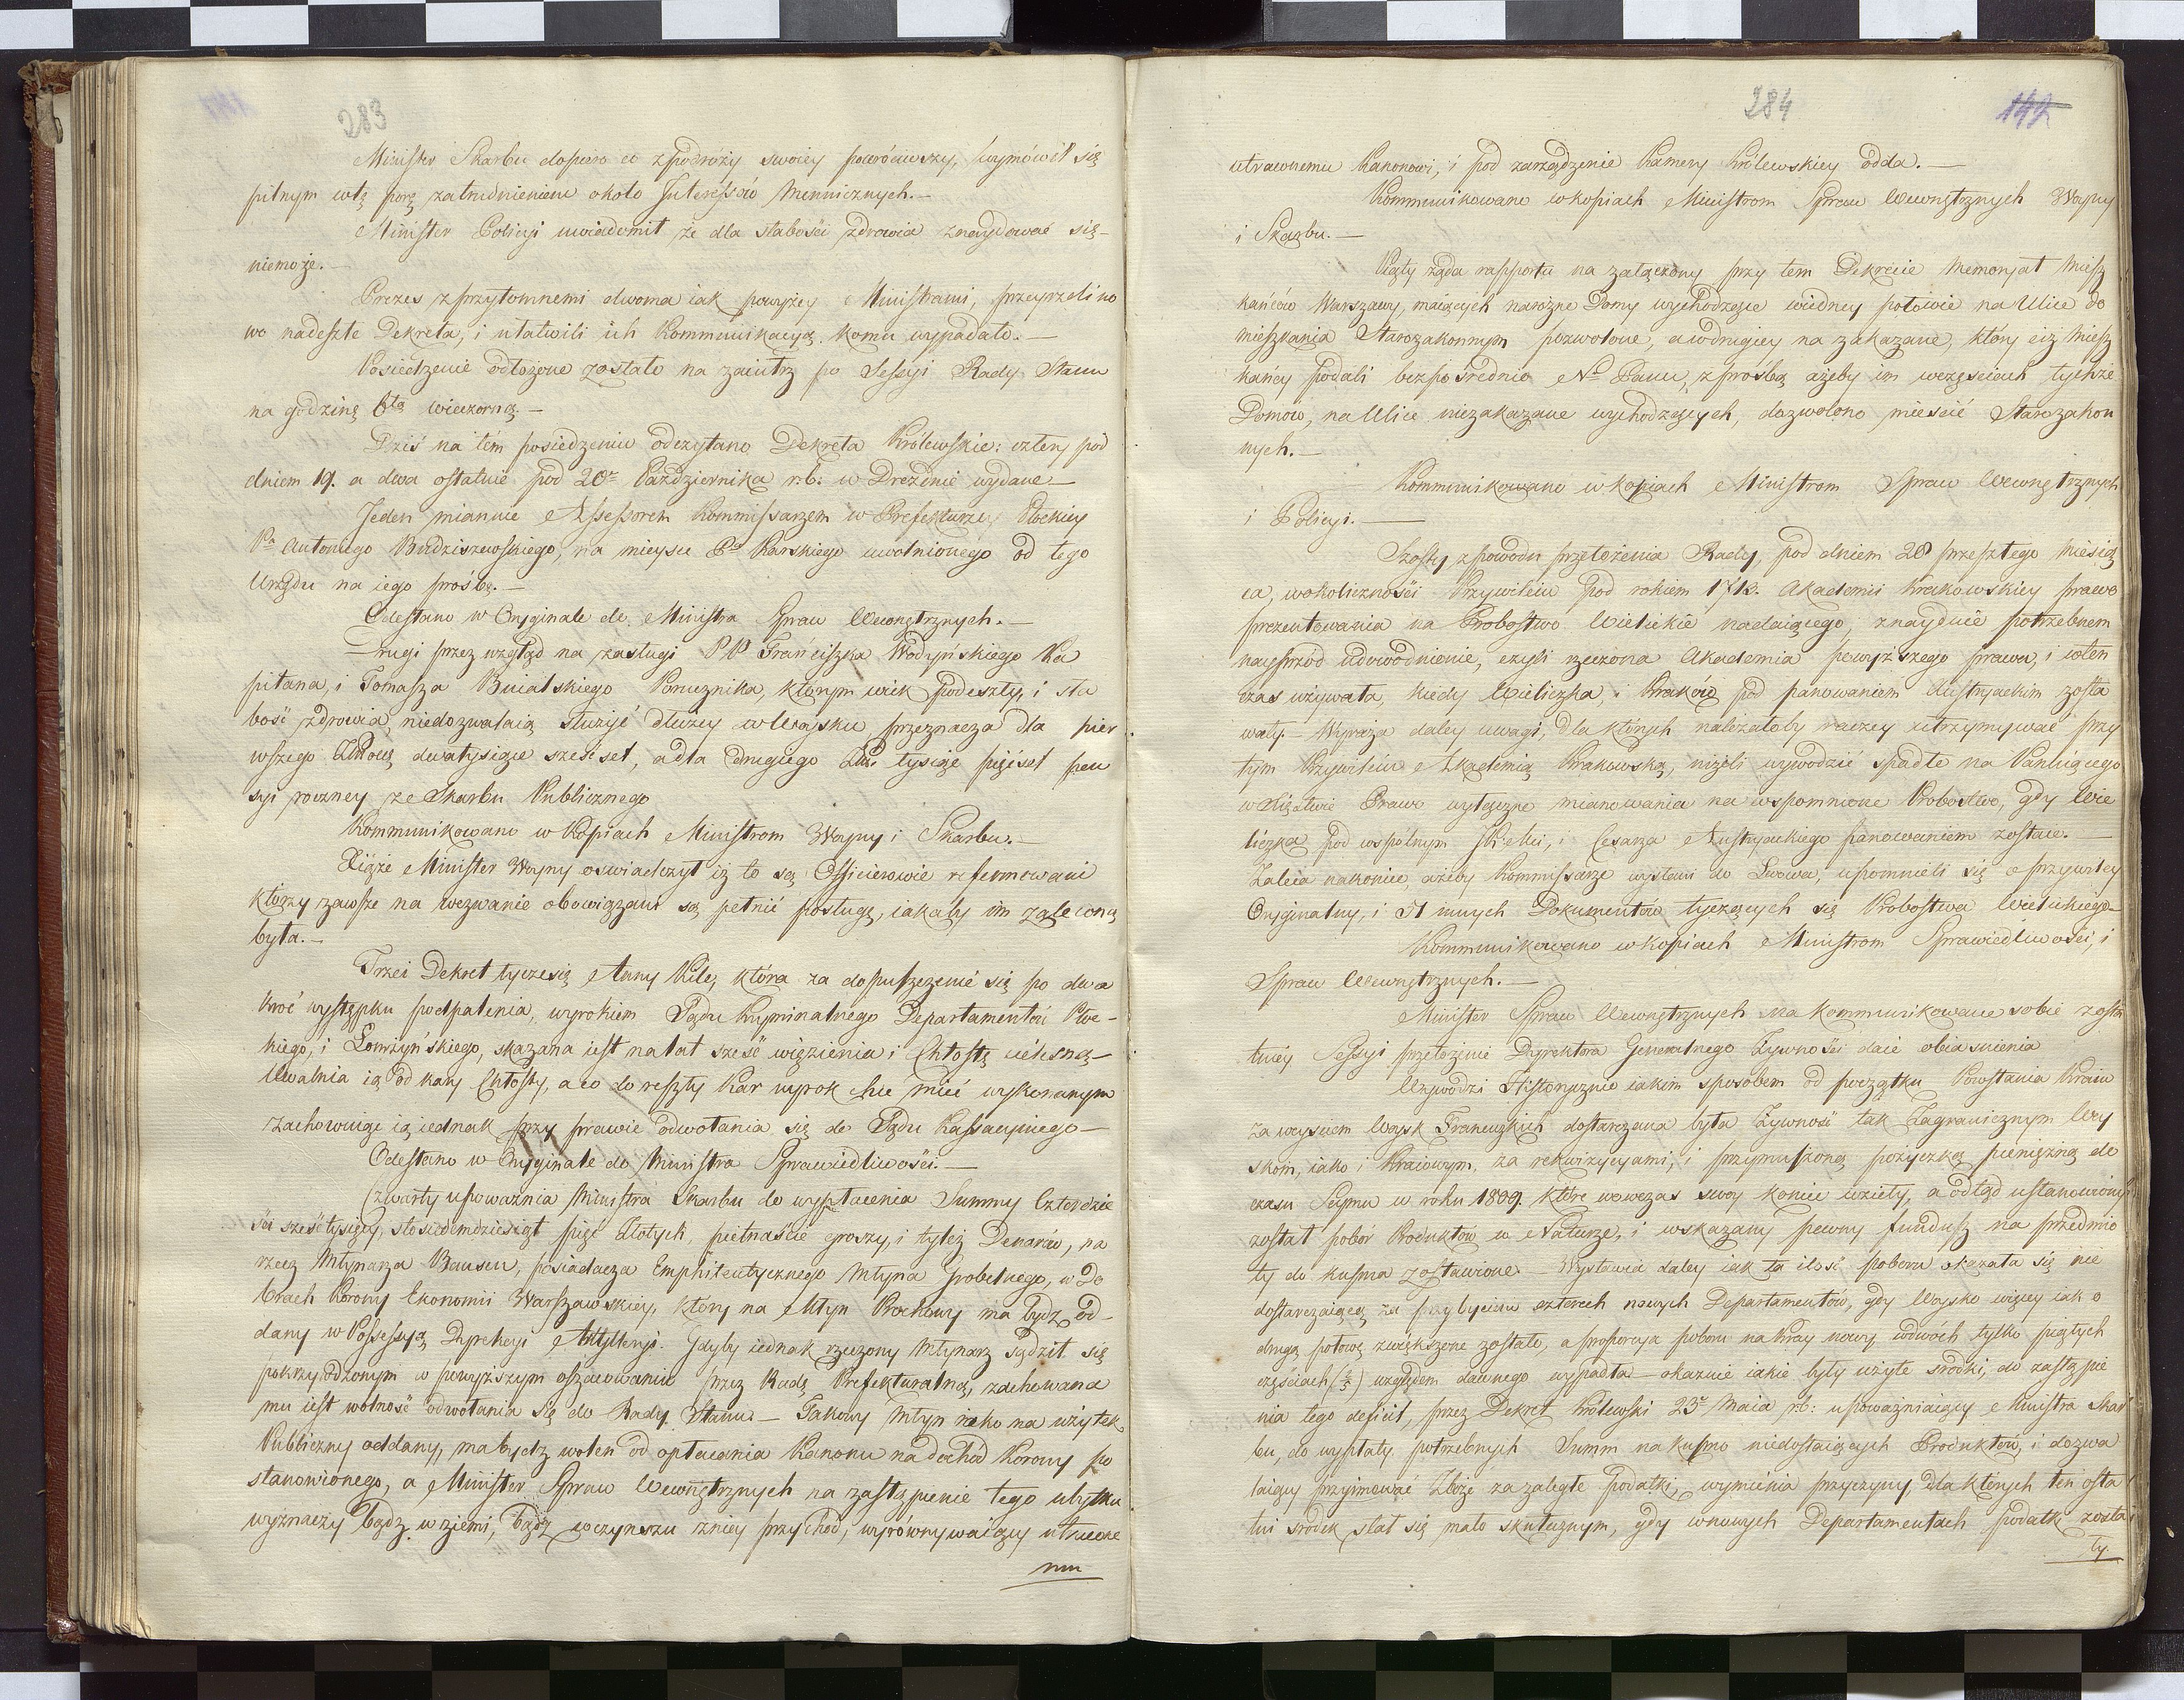 283
Minister Skarbu dopiero co z podróży swoiey powróciwszy, wymówił się
pilnym w tę porę zatrudnieniem około Interessów Menniczych.—
Minister Policyi uwiadomił że dla słabości zdrowia znaydować się
niemoże.—
Prezes z przytomnemi dwoma iak powyżey Ministrami, przeyrzeli no
wo nadeszłe Dekreta, i ułatwili ich Kommunikacyą komu wypadało.—
Posiedzenie odłożone zostało na zaiutrz po Sessyi Rady Stanu
na godzinę 6tą wieczorną.—
Dziś na tém posiedzeniu odczytano Dekreta Królewskie: cztery pod
dniem 19. a dwa ostatnie pod 20. Października r.b. w Dreźnie wydane—
Jeden mianuie Assessorem Kommissarzem w Prefekturze Płockiey
Pa Antoniego Budziszewskiego, na mieysce Pa Karskiego uwolnionego od tego
Urzędu na iego prośbę.—
Odesłano w Oryginale do Ministra Spraw Wewnętrznych.—
Drugi przez wzgląd na zasługi PP Franciszka Wodyńskiego Ka
pitana, i Tomasza Buialskiego Porucznika, którym wiek podeszły, i sła
bość zdrowia, niedozwalaią służyć dłużey w Woysku przeznacza dla pier
wszego dwatysiące sześćset, a dla drugiego tysiąc pięćset pen
syi roczney ze Skarbu Publicznego
Kommunikowano w Kopiach Ministrom Woyny i Skarbu.—
Xiąże Minister Woyny oświadczył iż to są Officierowie reformowani
którzy zawsze na wezwanie obowiązani są pełnić posługę, iakaby im zaleconą
była.—
Trzeci Dekret tycze się Anny Kile, która za dopuszczenie się po dwa
kroć występku podpalenia, wyrokiem Sądu Kryminalnego Departamentów Płoc-
kiego, i Łomżyńskiego, skazana iest na lat sześć więzienia i Chłostę cielesną—
Uwalnia ią od kary Chłosty, a co do reszty kar wyrok chce mieć wykonanym
zachowuiąc ią iednak przy prawie odwołania się do Sądu Kassacyinego—
Odesłano w Oryginale do Ministra Sprawiedliwości.—
Czwarty upoważnia Ministra Skarbu do wypłacenia Summy Czterdzie
ści sześć tysięcy, sto siedemdziesiąt pięć Złotych, piętnaście groszy, i tyleż Denarów, na
rzecz Młynarza Bausen, posiadacza Emphiteutycznego Młyna Grobelnego, w Do
brach Korony Ekonomii Warszawskiey, który na Młyn Prochowy ma bydz od-
dany w Possessyą Dyrekcyi Artylleryi. Gdyby iednak rzeczony Młynarz sądził się
pokrzywdzonym w powyższym oszacowaniu przez Radę Prefekturalną, zachowana
mu iest wolność odwołania się do Rady Stanu.— Takowy Młyn iako na użytek
Publiczny oddany, ma bydz wolen od opłacania Kanonu na dochod Korony po
stanowionego, a Minister Spraw Wewnętrznych na zastąpienie tego ubytku
wyznaczy bądz w ziemi, bądz w czynszu zniey przychod, wyrównywaiący utraco
nem
284
142
utraconemu Kanonowi, i pod zarządzenie Kamery Królewskiey odda.—
Kommunikowano w kopiach Ministrom Spraw Wewnętrznych Woyny
i Skarbu.—
Piąty żąda rapportu na załączony przy tem Dekrecie Memoryał Miesz
kańców Warszawy, maiących narożne Domy wychodzące w iedney połowie na Ulice do
mieszkania Starozakonnym pozwolone, a w drugiey na zakazane, który ciż Miesz
kańcy podali bezpośrednio N. Panu, z prośbą ażeby im w częściach tychże
Domów, na Ulice niezakazane wychodzących, dozwolono mieścić Starozakon
nych.—
Kommunikowano w kopiach Ministrom Spraw Wewnętrznych
i Policyi.—
Szosty z powodu przełożenia Rady, pod dniem 28 przeszłego Miesią
ca, w okoliczności Przywileiu pod rokiem Akademii Krakowskiey prawo
prezentowania na Probostwo Wielickie nadaiącego, znayduie potrzebnem
nayprzód udowodnienie, czyli rzeczona Akademia powyższego prawa, i w ten
czas używała, kiedy Wieliczka, i Kraków pod panowaniem Austryackim zosta
wały.— Wyraża daley uwagi, dla których należałoby raczey utrzymywać przy
tym Przywileiu Akademią Krakowską, niżeli wywodzić spadłe na Panuiącego
w Xięstwie Prawo wyłączne mianowania na wspomnione Probostwo, gdy Wie
liczka pod wspólnym Króla, i Cesarza Austryackiego panowaniem zostaie.—
Zaleca nakoniec, ażeby Kommissarze wysłani do Lwowa, upomnieli się o przywiley
Oryginalny, i o innych Dokumentów tyczących się Probostwa Wielickiego—
Kommunikowano w kopiach Ministrom Sprawiedliwości, i
Spraw Wewnętrznych.—
Minister Spraw Wewnętrznych na kommunikowane sobie z osta
tniey Sessyi przełożenie Dyrektora Generalnego Żywności daie obiasnienia
Wywodzi Historycznie iakim sposobem od początku Powstania Kraiu
za weysciem Woysk Francuzkich dostarczana była Żywność tak Zagranicznym Woy
skom, iako i Kraiowym, za rekwizycyami, i przymuszoną pożyczką pieniężną do
czasu Seymu w roku 1809. które wowczas swoy koniec wzięły, a odtąd ustanowiony
został pobór Produktów w Naturze, i wskazany pewny fundusz na przedmio
ty do kupna zostawione.— Wystawia daley iak ta ilość poboru okazała się nie
dostarczaiącą za przybyciem czterech nowych Departamentów, gdy Woysko więcey iak o
drugą połowę zwiększone zostało, a proporcya poboru na Kray nowy w dwóch tylko piątych
częściach (2/5) względem dawnego wypadła— okazuie iakie były użyte srodki, do zastąpie
nia tego deficit, przez Dekret Królewski 23. Maia r.b: upoważniaiący Ministra Skar
bu, do wypłaty potrzebnych Summ na kupno niedostaiących Produktów, i dozwa
laiący przyimować Zboże za zaległe podatki, wymienia przyczyny dla których ten osta
tni srodek stał się mało skutecznym, gdy w nowych Departamentach podatki zosta
ły.